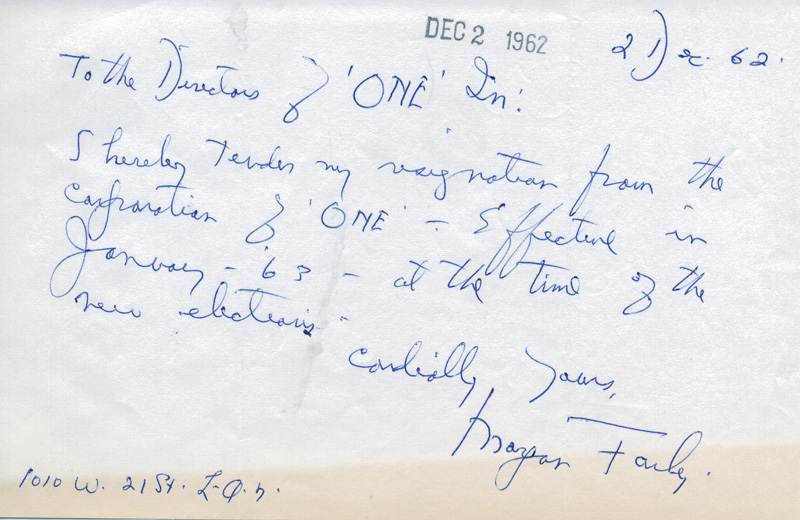 DEC 2 1962
2 Dec. 62.
To the Directors of 'ONE' In:
I hereby tender my resignation from the
corporation of 'ONE' - Effective in
January - '63 - at the time of the
new elections -
Cordially Yours,
Morgan Farley.
1010 W. 21 St. L.A. 7.